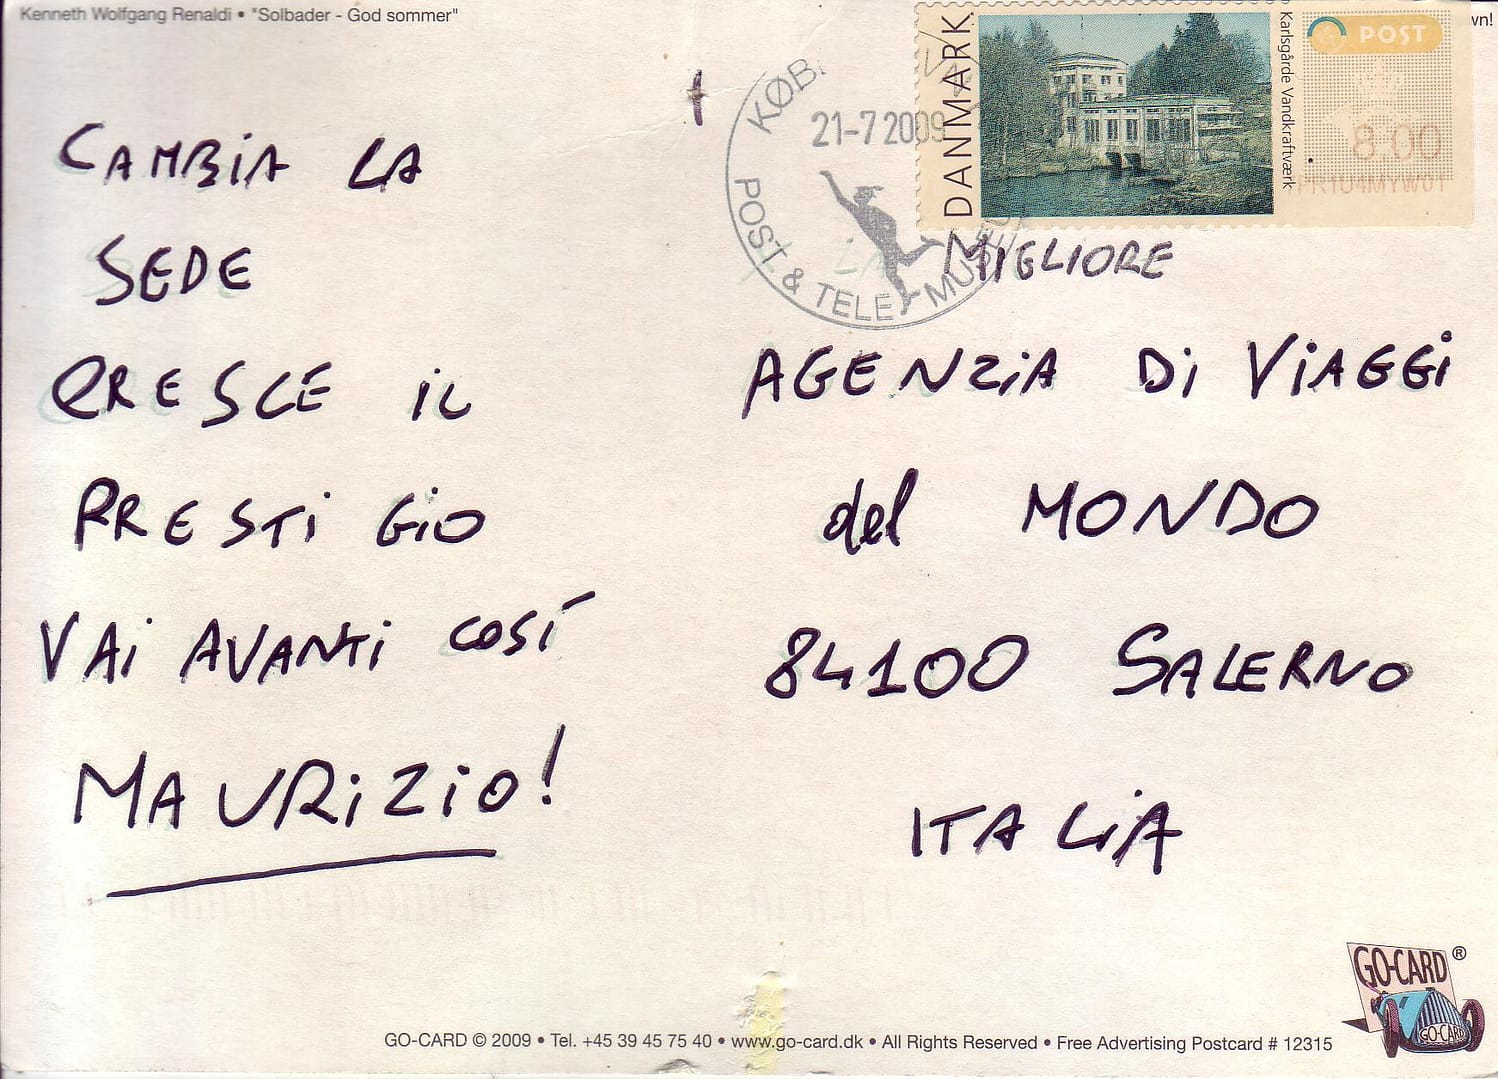 Kenneth Wolfgang Renaldi • "Solbader - God sommer"
wn!
CAMBiA LA
SEDE
CRESCE iL
PRESTiGiO
VAi AVANTi COSÍ
MAURiZiO!
KØB
21-7 2009
POST & TELE MUSEU
DANMARK
Karlsgårde Vandkraftværk
POST
8.00
PR1U4MYW01
LA MIGLIORE
AGENZiA Di ViAGGi
del MONDO
84100 SALERNO
ITALiA
GO-CARD®
GO-CARD
GO-CARD © 2009 • Tel. +45 39 45 75 40 • www.go-card.dk • All Rights Reserved • Free Advertising Postcard # 12315